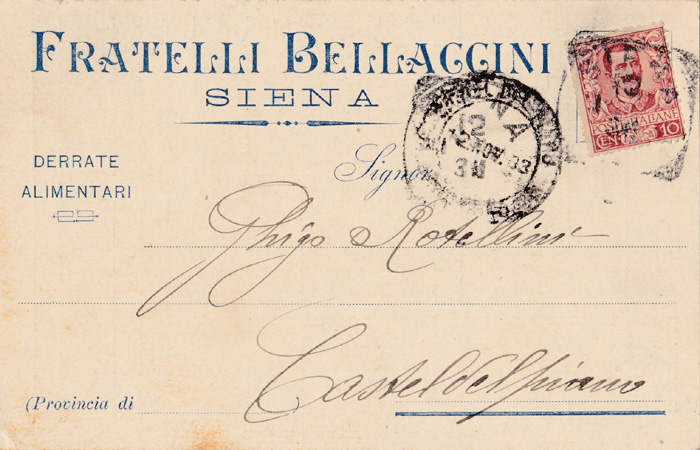 FRATELLI BELLACCINI
SIENA
DERRATE
ALIMENTARI
Signor
Ghigo Rotellini
Casteldelpiano
(Provincia di
POSTE ITALIANE
CENT. 10
SIENA
12
NOV. 03